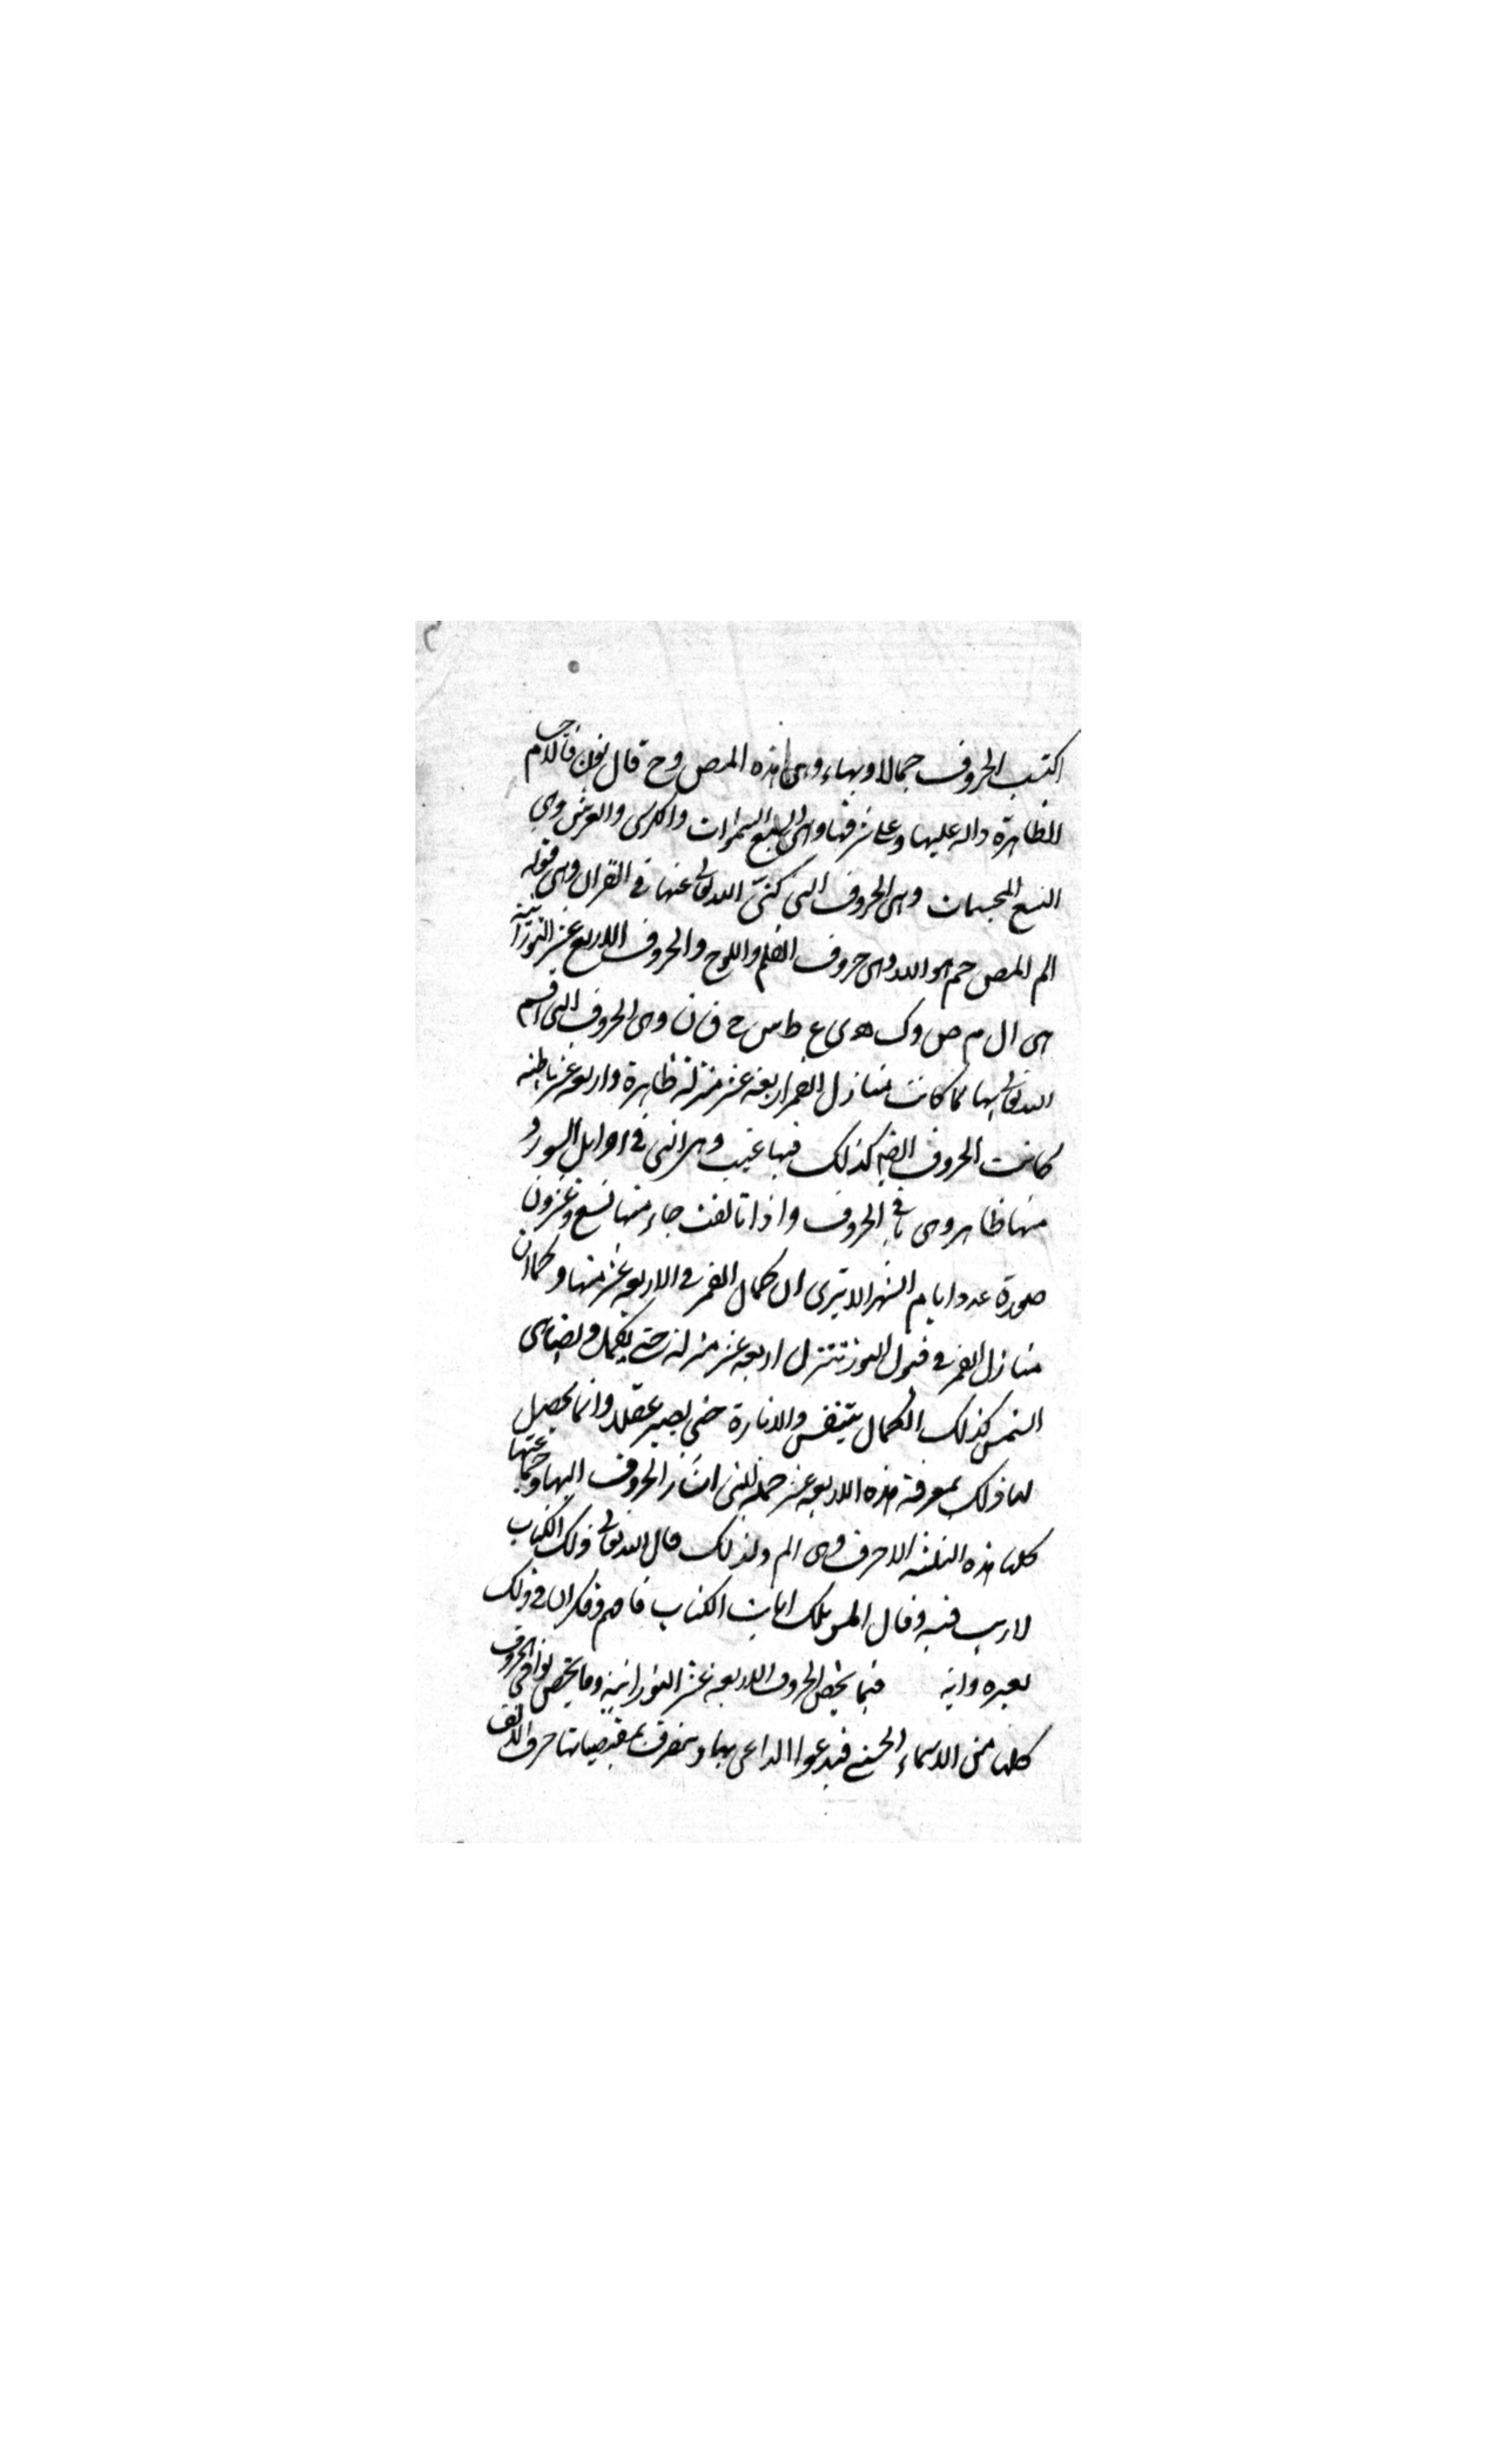 اكتب الحروف جمالا وبهاء وهى هذه المص وح ق ال نون فالاجسام
الظاهرة داله عليها وعلى شرفها وهى السبع السموات والكرسى والعرش وهى
التسع المجسمات وهى الحروف التى كنى الله تعالى عنها فى القران وهى قوله
الم المص حم هو الله وهى حروف القلم واللوح والحروف الاربع عشر النورانية
هى ال م ص و ك ه ى ع ط س ح ق ن وهى الحروف التى اقسم
الله تعالى بها لما كانت منازل القمر اربعة عشر منزلة ظاهرة واربعه عشر باطنه
كانت الحروف ايضا كذلك فيها غيب وهى التى فى اوايل السور و
منها ظاهر وهى باقى الحروف واذا تالفت جاء منها تسع وعشرون
صورة عدد ايام الشهر الا ترى ان كمال القمر فى الاربعه عشر منها وكما ان
منازل القمر فى قبول النور تتنزل اربعه عشر منزلة حتى يكمل ويضاهى
الشمس كذلك الكمال يتنفس والانارة حتى يصير عقلا وانما يحصل
لها ذلك بمعرفة هذه الاربعه عشر جملة التى اشار الحروف اليها وجماعتها
كلها هذه الثلثه الاحرف وهى الم ولذلك قال الله تعالى ذلك الكتاب
لا ريب فيه وقال المر تلك ايات الكتاب فافهم وفكر ان فى ذلك
لعبره واية فيما يخص الحروف الاربعه عشر النورانية وما يخص بواقى الحروف
كلها من الاسماء الحسنى فيدعوا الداعى بها ويتصرف بمقتضياتها حرف الالف